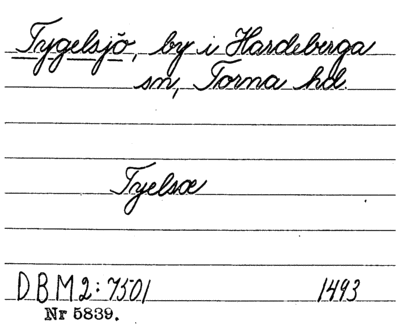 Tygelsjö, by i Hardeberga
sn, Torna hd.
Tyelsæ
DBM2:7501 1493
Nr 5839.